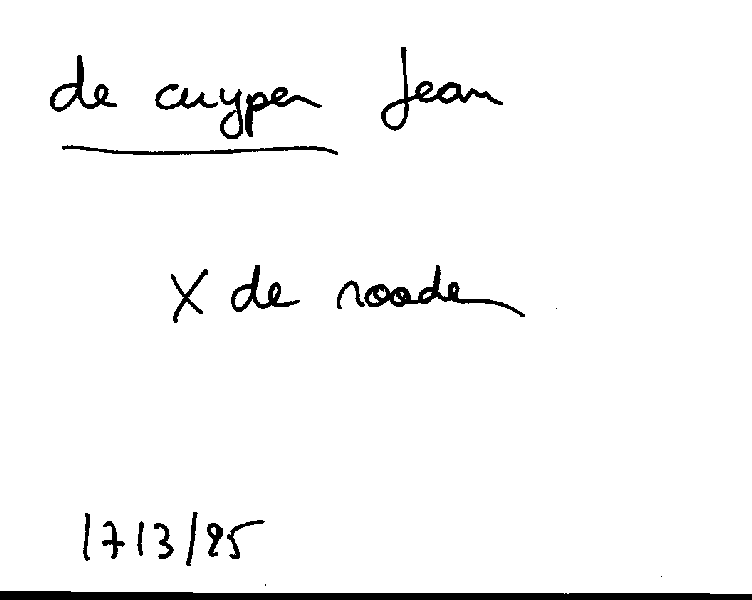 de cuyper Jean
X de roode
1713/25